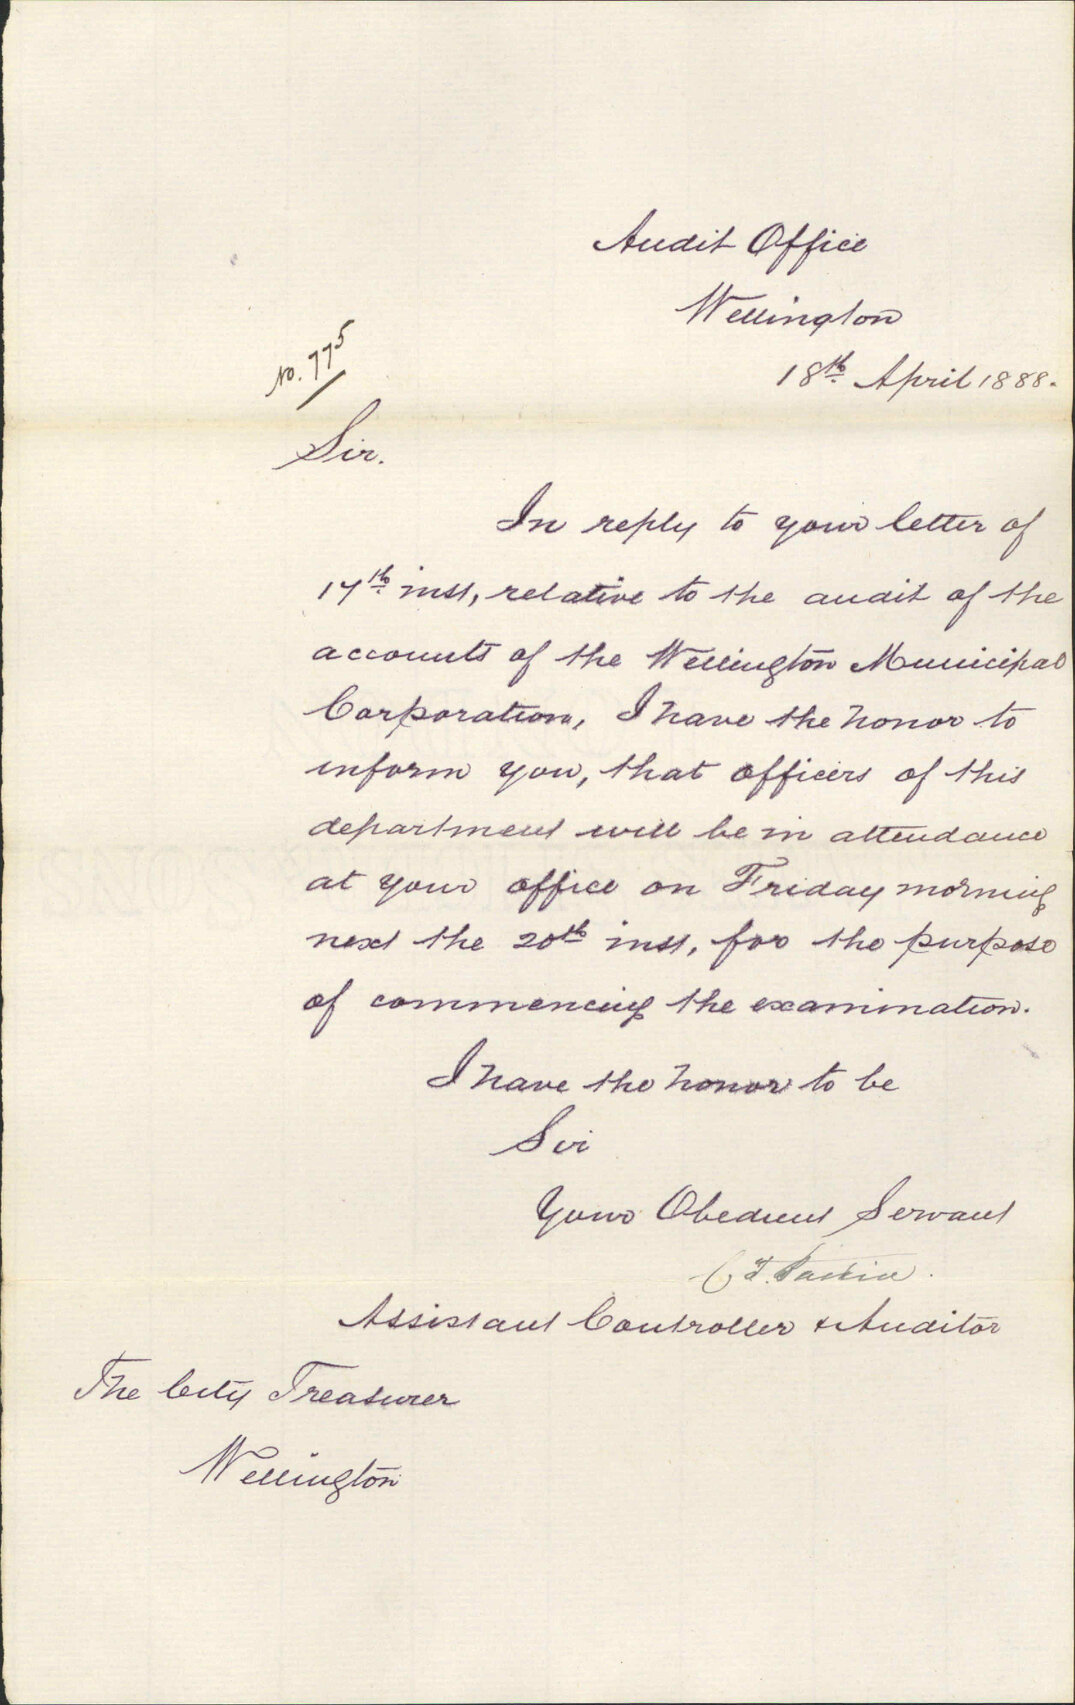 Audit Office
Wellington
18th April 1888.
No. 775
Sir.
In reply to your letter of
17th inst, relative to the audit of the
accounts of the Wellington Municipal
Corporation, I have the honor to
inform you, that officers of this
department will be in attendance
at your office on Friday morning
next the 20th inst, for the purpose
of commencing the examination.
I have the honor to be
Sir
Your Obedient Servant
Assistant Controller & Auditor
The City Treasurer
Wellington